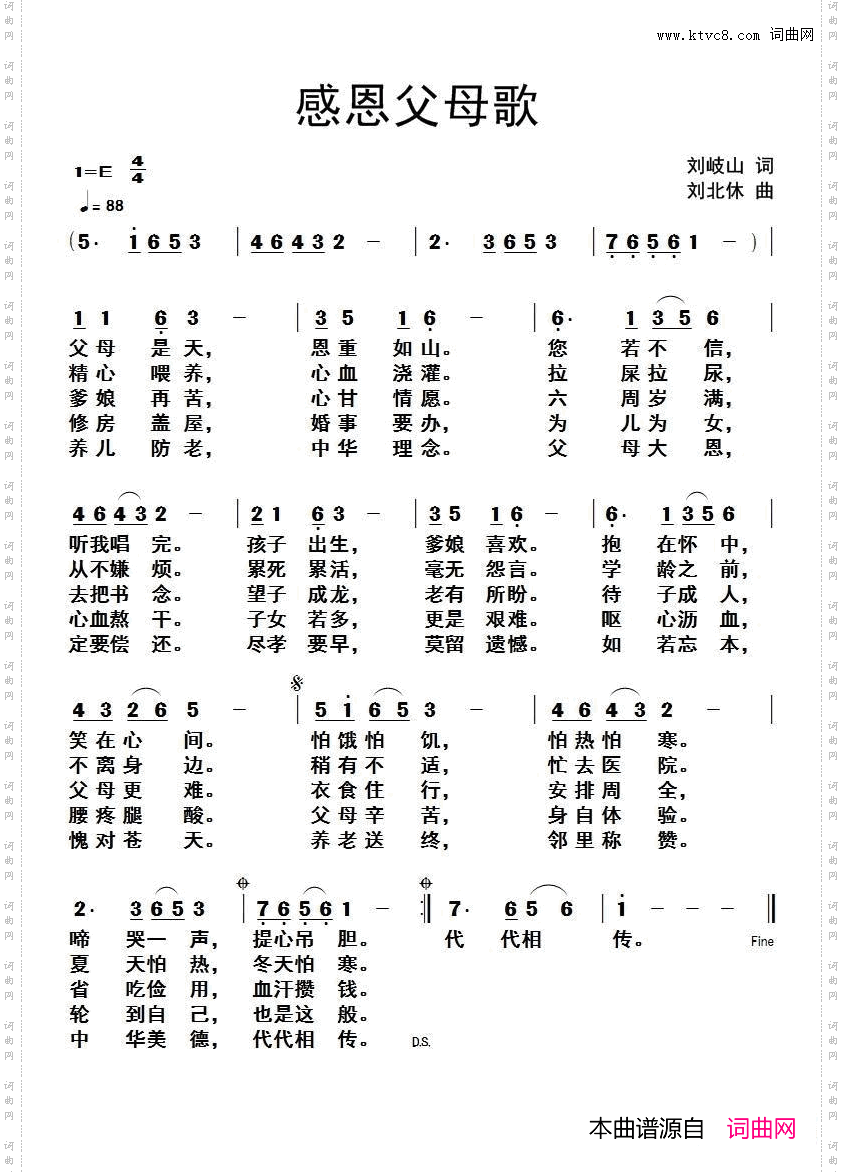 www.ktvc8.com 词曲网
感恩父母歌
1=E 4/4
刘岐山 词
♩= 88
刘北休 曲
(5· i653 | 46432 － | 2· 3653 | 76561 －) |
1 1 6 3 － | 3 5 1 6 － | 6· 1 3 5 6 |
父母 是天， 恩重 如山。 您 若不 信，
精心 喂养， 心血 浇灌。 拉 屎拉 尿，
爹娘 再苦， 心甘 情愿。 六 周岁 满，
修房 盖屋， 婚事 要办， 为 儿为 女，
养儿 防老， 中华 理念。 父 母大 恩，
46432 － | 21 63 － | 35 16 － | 6· 1356 |
听我唱 完。 孩子 出生， 爹娘 喜欢。 抱 在怀 中，
从不嫌 烦。 累死 累活， 毫无 怨言。 学 龄之 前，
去把书 念。 望子 成龙， 老有 所盼。 待 子成 人，
心血熬 干。 子女 若多， 更是 艰难。 呕 心沥 血，
定要偿 还。 尽孝 要早， 莫留 遗憾。 如 若忘 本，
4 3 2 6 5 － | 5 i 6 5 3 － | 4 6 4 3 2 － |
笑在心 间。 怕饿怕 饥， 怕热怕 寒。
不离身 边。 稍有不 适， 忙去医 院。
父母更 难。 衣食住 行， 安排周 全，
腰疼腿 酸。 父母辛 苦， 身自体 验。
愧对苍 天。 养老送 终， 邻里称 赞。
2· 3653 | 76561 － :‖ 7· 65 6 | i － － － ‖
啼 哭一 声， 提心吊 胆。 代 代相 传。 Fine
夏 天怕 热， 冬天怕 寒。
省 吃俭 用， 血汗攒 钱。
轮 到自 己， 也是这 般。
中 华美 德， 代代相 传。 D.S.
本曲谱源自 词曲网